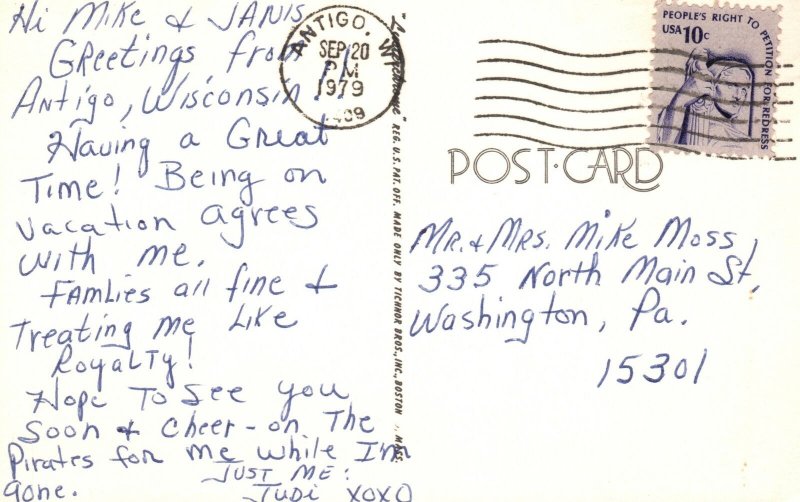 Hi Mike & JANIS
Greetings from
Antigo, Wisconsin!
Having a Great
Time! Being on
vacation agrees
with me.
Famlies all fine &
Treating me Like
Royalty!
Hope To See you
Soon & Cheer-on The
Pirates for me while I'm
gone.
JUST ME:
Judi XOXO
ANTIGO, WI
SEP 20
PM
1979
REG. U.S. PAT. OFF. MADE ONLY BY TICHNOR BROS., INC., BOSTON, MASS.
PEOPLE'S RIGHT TO PETITION FOR REDRESS
USA 10c
POST-CARD
Mr. & Mrs. Mike Moss,
335 North Main St,
Washington, Pa.
15301